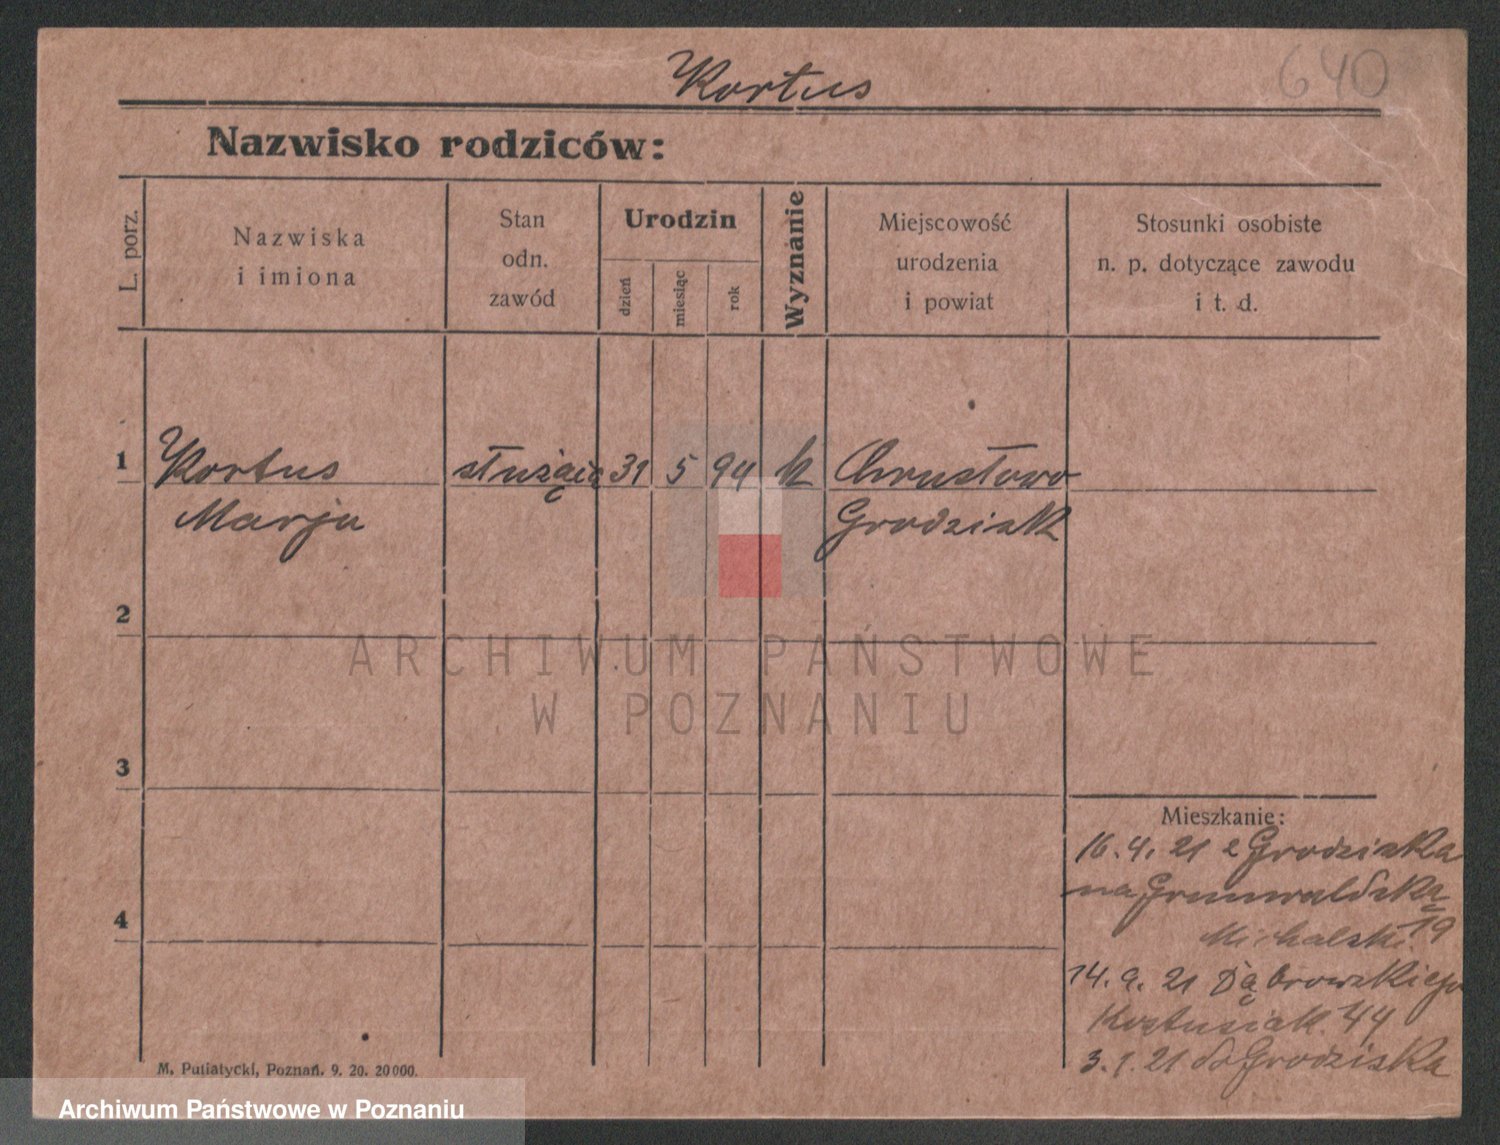 Kortus
640
Nazwisko rodziców:
L. porz.
Nazwiska
i imiona
Stan
odn.
zawód
Urodzin
dzień
miesiąc
rok
Wyznanie
Miejscowość
urodzenia
i powiat
Stosunki osobiste
n. p. dotyczące zawodu
i t. d.
1
Kortus
Marja
służąca
31
5
94
k
Chrustowo
Grodzisk
2
3
4
ARCHIWUM PAŃSTWOWE
W POZNANIU
Mieszkanie:
16. 4. 21 z Grodziska
na Grunwaldzką
Michalski 19
14. 9. 21 Dąbrowskiego
44
21 do Grodziska
M. Putiatycki, Poznań. 9. 20. 20000.
Archiwum Państwowe w Poznaniu